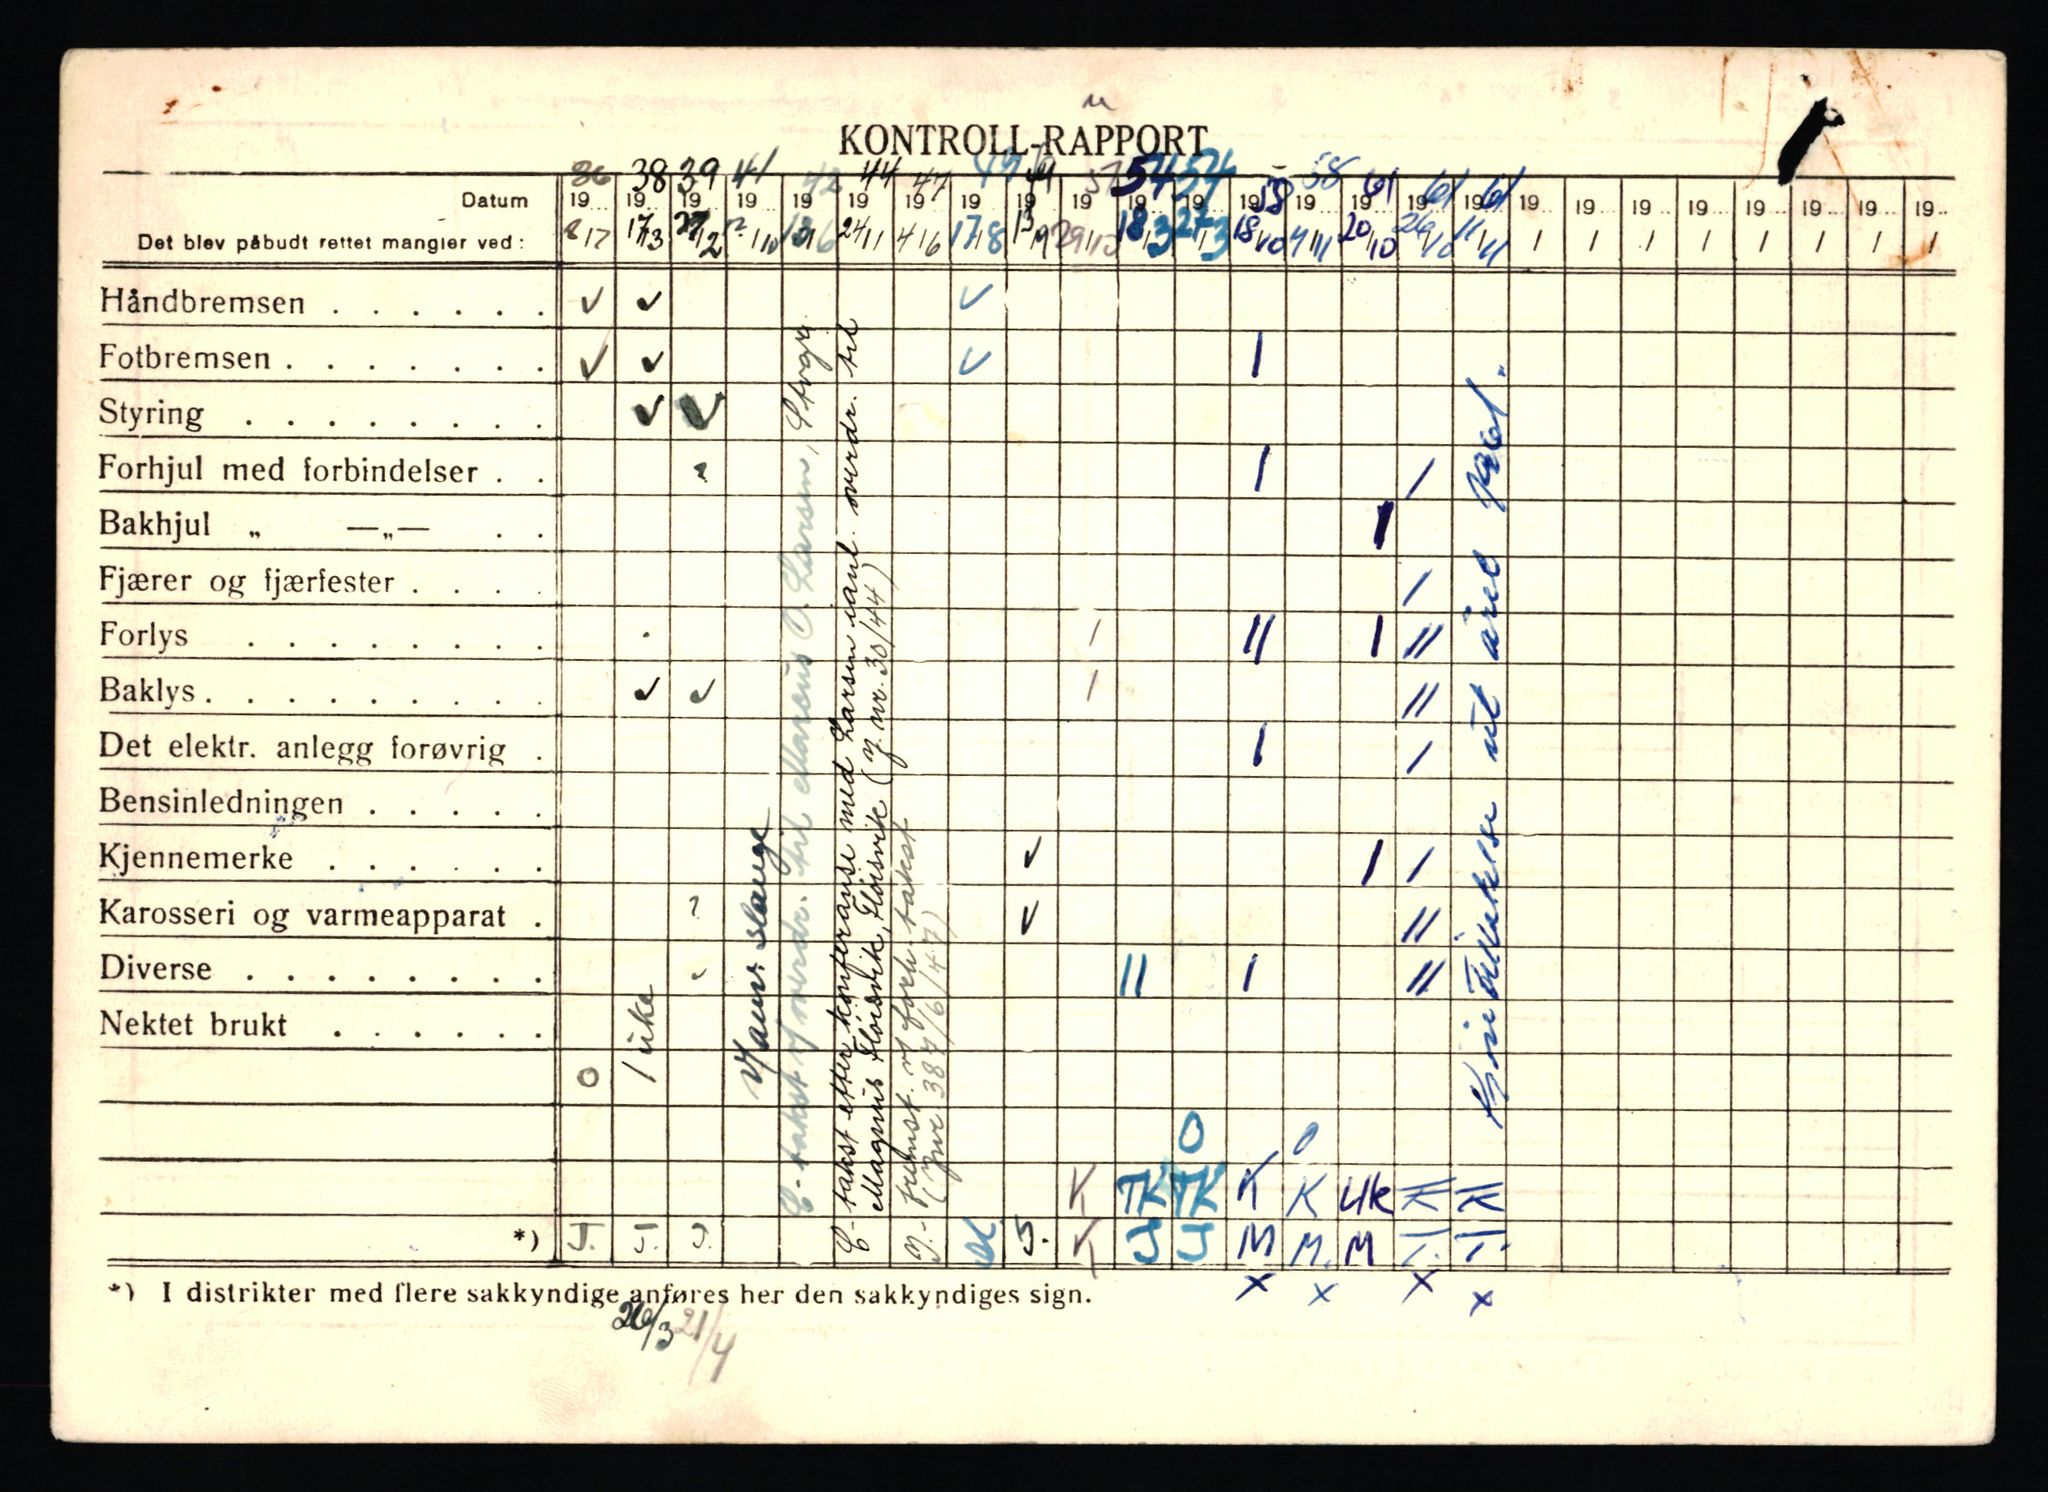 KONTROLL-RAPPORT
36 38 39 41 42 44 47 49 51 54 54 58 58 61 61 61
Datum 19 19 19 19 19 19 19 19 19 19 19 19 19 19 19 19 19 19 19 19 19 19 19 19 19
Det blev påbudt rettet mangler ved: 8/7 17/3 27/2 /10 13/6 24/11 4/6 17/8 13/9 29/10 18/3 27/3 18/10 4/11 20/10 26/10 11/11 / / / / / / / /
Håndbremsen ✓ ✓ ✓
Fotbremsen ✓ ✓ ✓ I
Styring ✓ ✓
Forhjul med forbindelser I /
Bakhjul „ —„— I
Fjærer og fjærfester /
Forlys I II I II
Baklys ✓ ✓ I II
Det elektr. anlegg forøvrig I /
Bensinledningen
Kjennemerke ✓ I /
Karosseri og varmeapparat ? ✓ II
Diverse II I II
Nektet brukt
O 1 uke
O O
K TK TK K K UK K K
*) J. J. J. J. K J J M M. M T. T.
x x x x
v/ Hans Slange
E-takst v/ overdr. til Marcus O. Larsen,
E-takst etter konferanse med Larsen i anl. overdr. til
Magnus Hoisvik, Hoisvik (j.nr. 30/44)
J. fremst. v/ forh. takst
(jnr 387/6/47)
Kjøretillatelse ut året 1961.
*) I distrikter med flere sakkyndige anføres her den sakkyndiges sign.
26/3 21/4